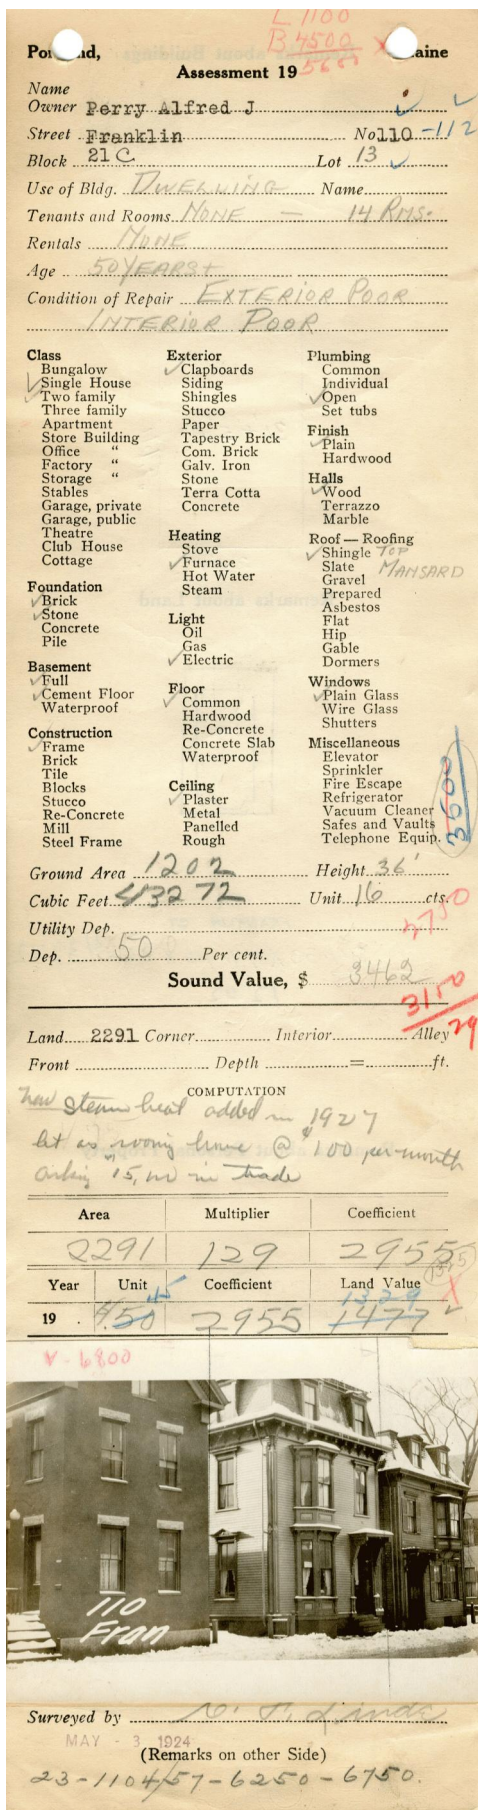 L 1100
B 4500 X
5600
Portland, Maine
Assessment 19
Name
Owner Perry Alfred J
Street Franklin No110-112
Block 21 C Lot 13
Use of Bldg. DWELLING Name
Tenants and Rooms NONE — 14 RMS.
Rentals NONE
Age 50 YEARS +
Condition of Repair EXTERIOR POOR
INTERIOR POOR
Class
Bungalow
Single House
Two family
Three family
Apartment
Store Building
Office "
Factory "
Storage "
Stables
Garage, private
Garage, public
Theatre
Club House
Cottage
Foundation
Brick
Stone
Concrete
Pile
Basement
Full
Cement Floor
Waterproof
Construction
Frame
Brick
Tile
Blocks
Stucco
Re-Concrete
Mill
Steel Frame
Exterior
Clapboards
Siding
Shingles
Stucco
Paper
Tapestry Brick
Com. Brick
Galv. Iron
Stone
Terra Cotta
Concrete
Heating
Stove
Furnace
Hot Water
Steam
Light
Oil
Gas
Electric
Floor
Common
Hardwood
Re-Concrete
Concrete Slab
Waterproof
Ceiling
Plaster
Metal
Panelled
Rough
Plumbing
Common
Individual
Open
Set tubs
Finish
Plain
Hardwood
Halls
Wood
Terrazzo
Marble
Roof — Roofing
Shingle TOP
Slate MANSARD
Gravel
Prepared
Asbestos
Flat
Hip
Gable
Dormers
Windows
Plain Glass
Wire Glass
Shutters
Miscellaneous
Elevator
Sprinkler
Fire Escape
Refrigerator
Vacuum Cleaner
Safes and Vaults
Telephone Equip.
3600
Ground Area 1202 Height 36'
Cubic Feet 43272 Unit 16 cts.
2750
Utility Dep.
Dep. 50 Per cent.
Sound Value, $ 3462
3150
29
Land 2291 Corner Interior Alley
Front Depth = ft.
COMPUTATION
New steam heat added in 1927
let as rooming house @ $100 per month
in trade
Area Multiplier Coefficient
2291 129 2955
Year Unit Coefficient Land Value
45 1329
19 .50 2955 1477
V-6800
110
Fran
Surveyed by
MAY - 3 1924
(Remarks on other Side)
23-1104/57-6250-6750.